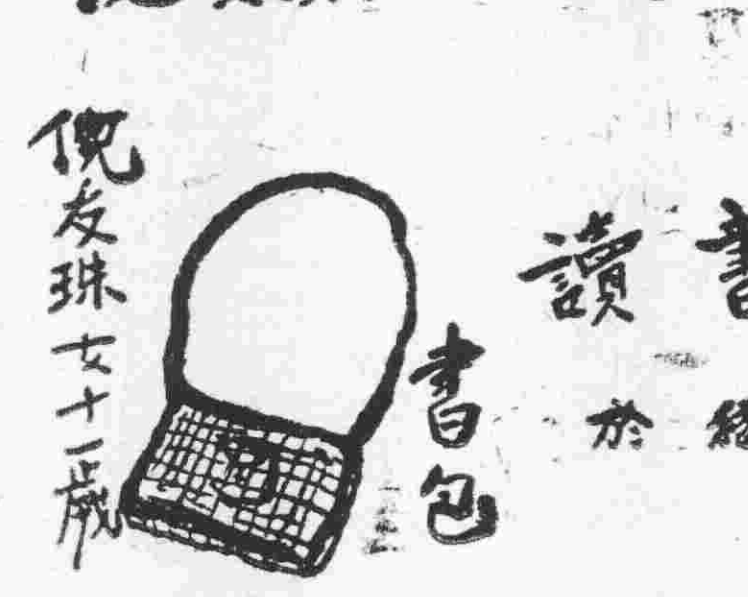 讀
於
書包
倪友珠女十一歲